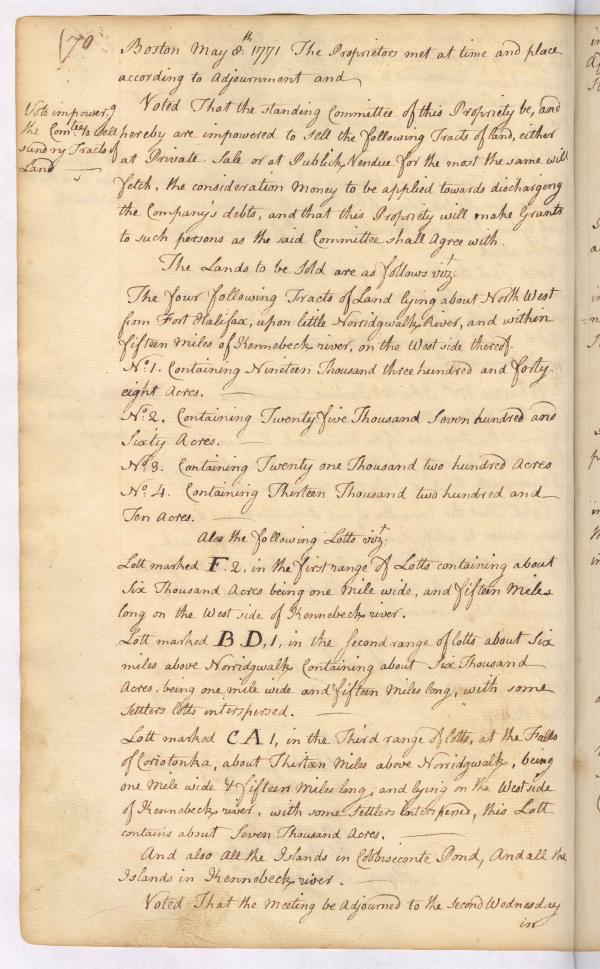 170
Boston May 8th: 1771 The Proprietors met at time and place
according to Adjournment and
Vote impower.g
the Com.tee to sell
sundry Tracts of
Land
Voted That the standing Committee of this Propriety be, and
hereby are impowered to sell the following Tracts of land, either
at Private Sale or at Publick Vendue for the most the same will
fetch, the consideration Money to be applied towards discharging
the Company's debts, and that this Propriety will make Grants
to such persons as the said Committee shall Agree with.
The Lands to be Sold are as follows vizt:
The four following Tracts of Land lying about North West
from Fort Halifax, upon little Norridgwalk River, and within
fifteen Miles of Kennebeck river, on the West side thereof.
No. 1. Containing Nineteen Thousand three hundred and forty
eight Acres.
No. 2. Containing Twenty five Thousand Seven hundred and
Sixty Acres.
No. 3. Containing Twenty one Thousand two hundred Acres
No. 4. Containing Thirteen Thousand two hundred and
Ten Acres.
Also the following Lotts vizt:
Lott marked F. 2, in the first range of Lotts containing about
Six Thousand Acres being one Mile wide, and fifteen Miles
long on the West side of Kennebeck river.
Lott marked B D, 1, in the Second range of lotts about Six
miles above Norridgwalk Containing about Six Thousand
Acres, being one mile wide and fifteen Miles long, with some
Settlers lotts interspersed.
Lott marked C A 1, in the Third range of lotts, at the Falls
of Coriotonka, about Thirteen Miles above Norridgwalk, being
one Mile wide & fifteen Miles long, and lying on the West side
of Kennebeck river, with some Settlers interspersed, this Lott
contains about Seven Thousand Acres.
And also all the Islands in Cobbiseconte Pond, And all the
Islands in Kennebeck river.
Voted That the Meeting be Adjourned to the Second Wednesday
in